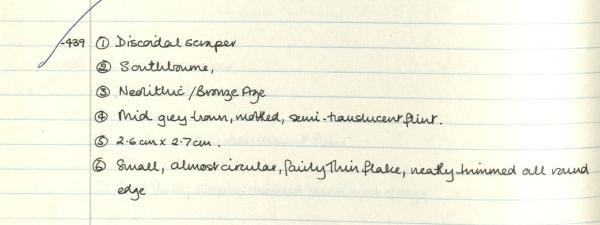 -439 ① Discoidal scraper
② Southbourne,
③ Neolithic / Bronze Age
④ Mid grey-brown, mottled, semi-translucent flint.
⑤ 2.6cm x 2.7cm.
⑥ Small, almost circular, fairly thin flake, neatly trimmed all round
edge